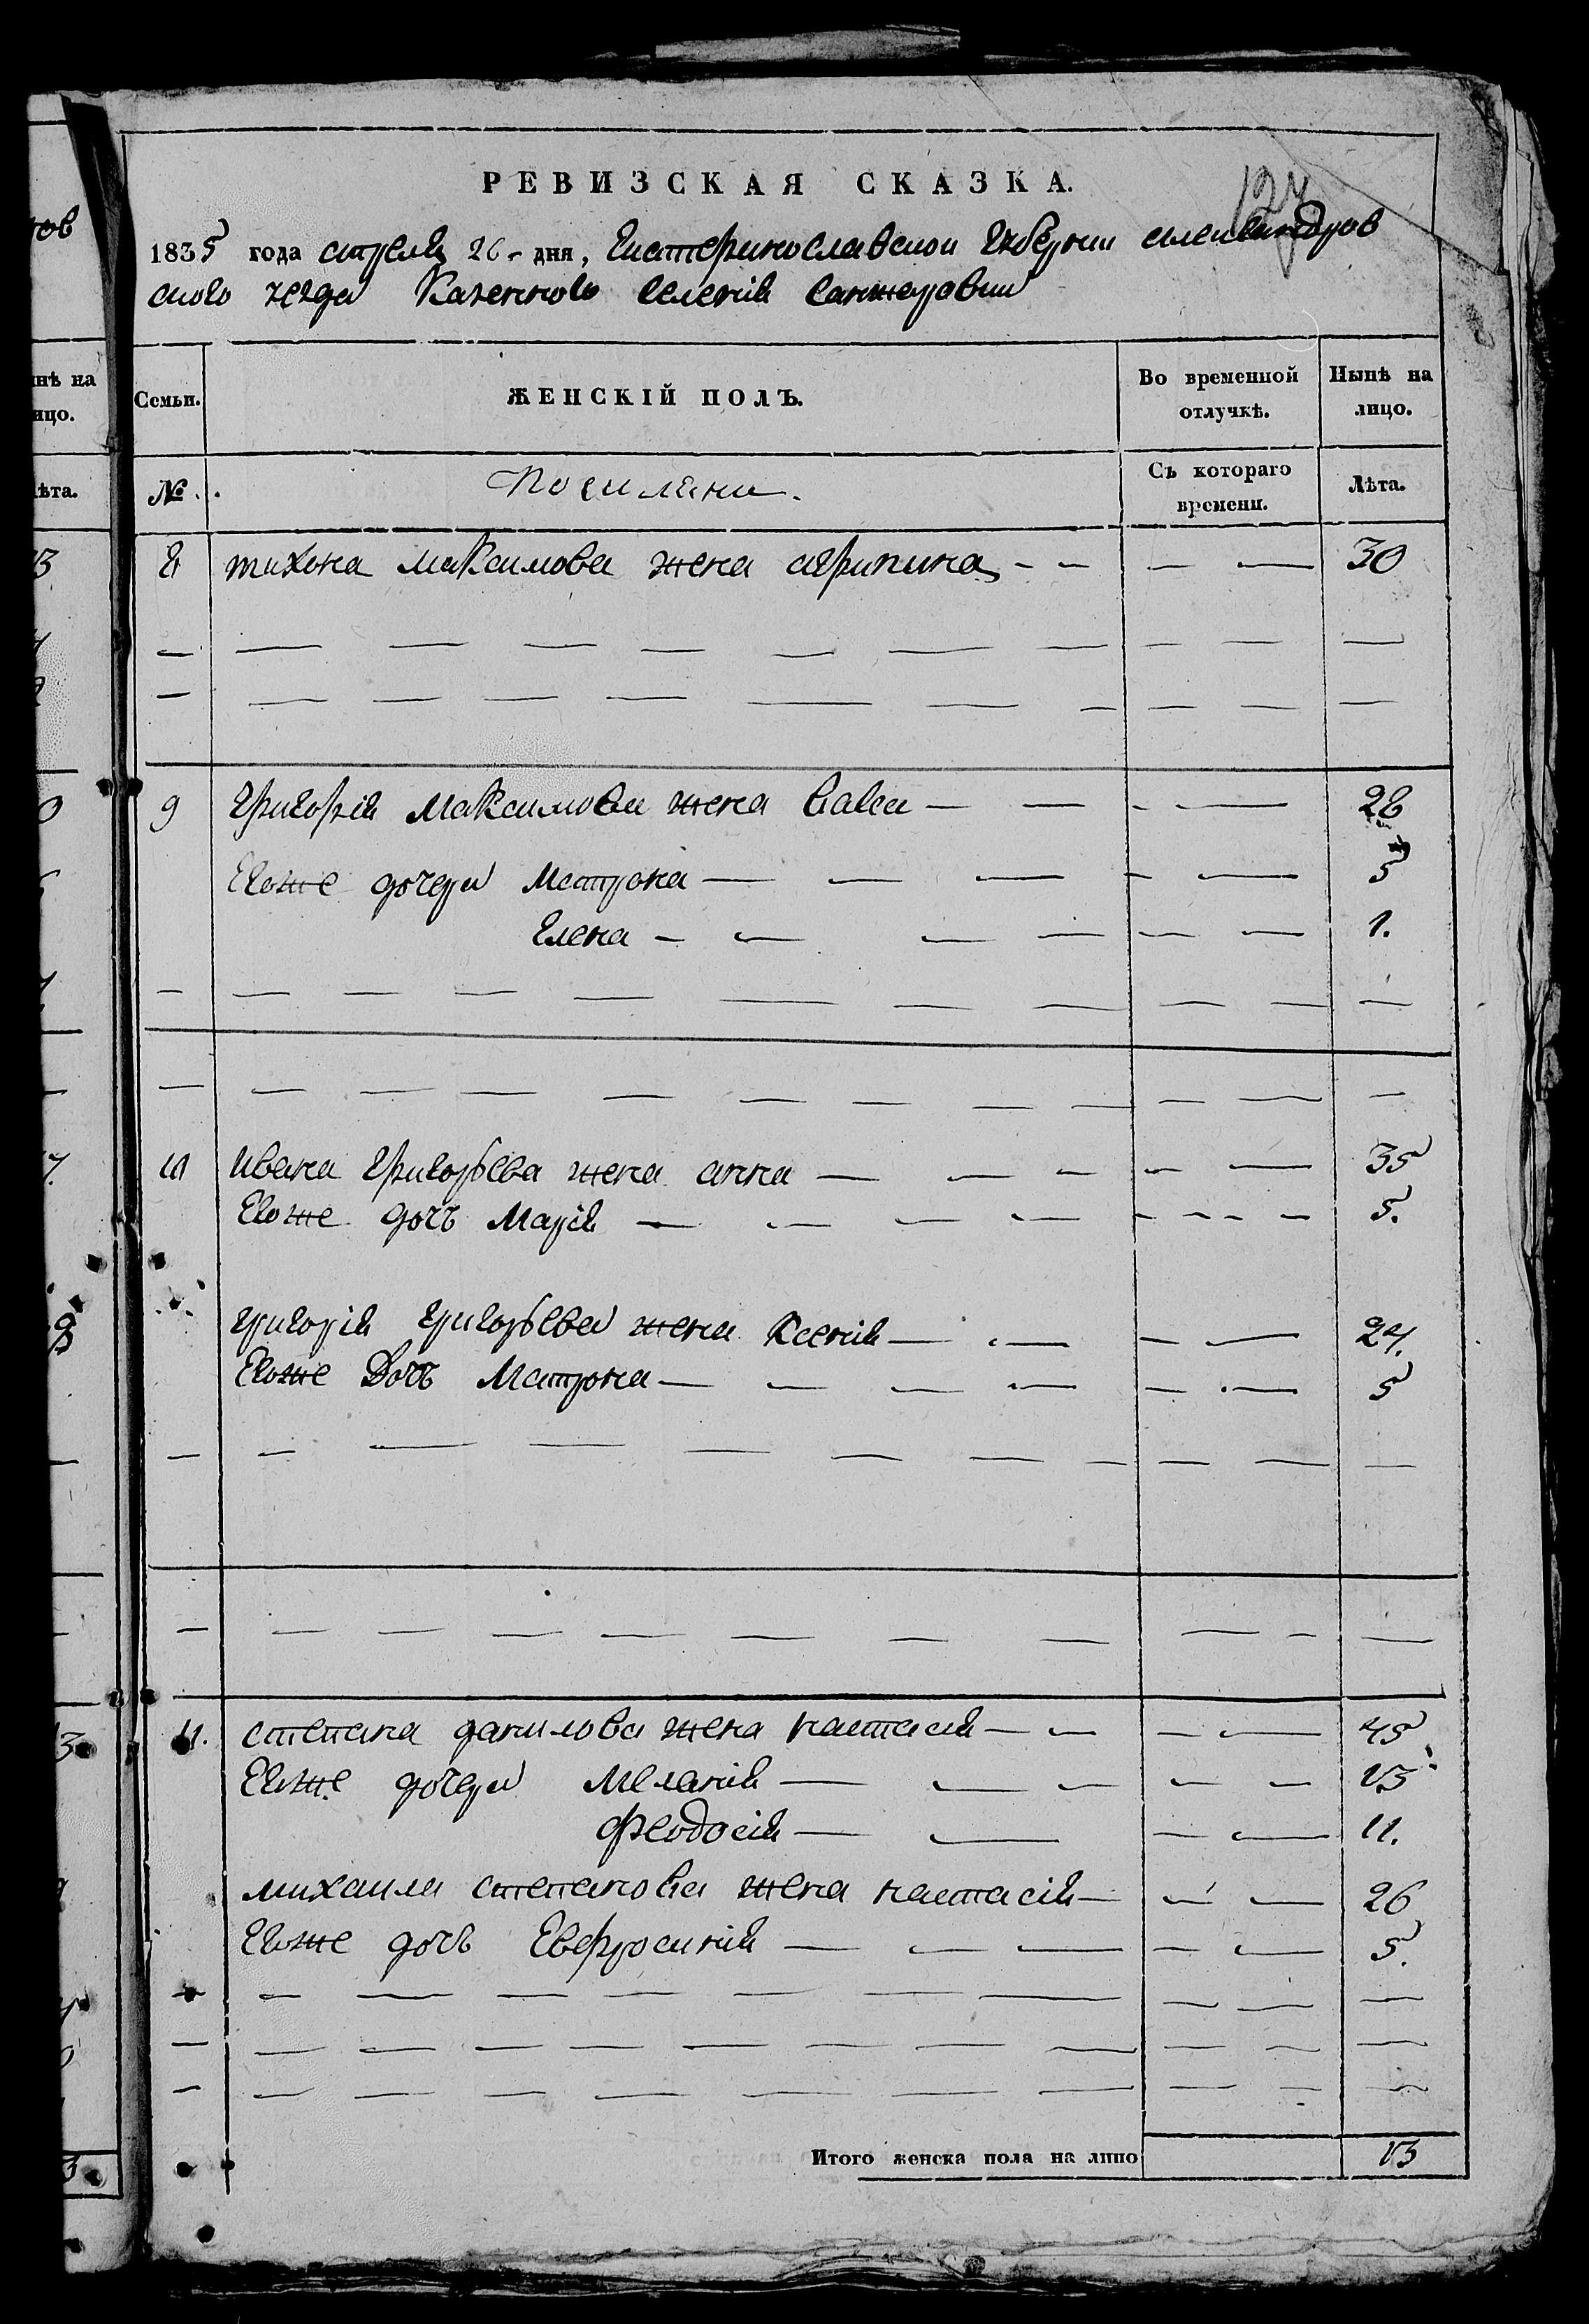 127
РЕВИЗСКАЯ СКАЗКА.
1835 года апреля 26 дня, Екатеринославской губернии александров
ского уезда Казенного селенія Санжаровки
Семьи. ЖЕНСКІЙ ПОЛЪ. Во временной отлучкѣ. Нынѣ на лицо.
№ Поселяни. Съ котораго времени. Лѣта.
8 тихона максимова жена агрипина 30
9 григорія максимова жена васса 28
Егоже дочери Матрона 5
Елена 1.
10 ивана григорьева жена анна 35
Егоже дочь Марія 5.
григорія григорьева жена Ксенія 24.
Егоже Дочь Матрона 5
11. степана данилова жена настасія 45
Егоже дочери Меланія 13
Феодосія 11.
михаила степанова жена настасія 26
Егоже дочь Евфросинія 5.
Итого женска пола на лицо 13